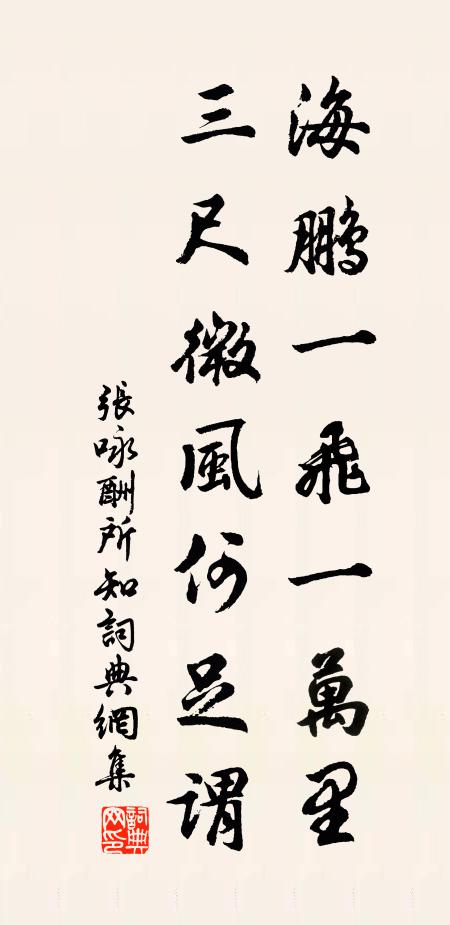 海鵬一飛一萬里
三尺微風何足謂
張咏酬所知詞典網集
詞典網印